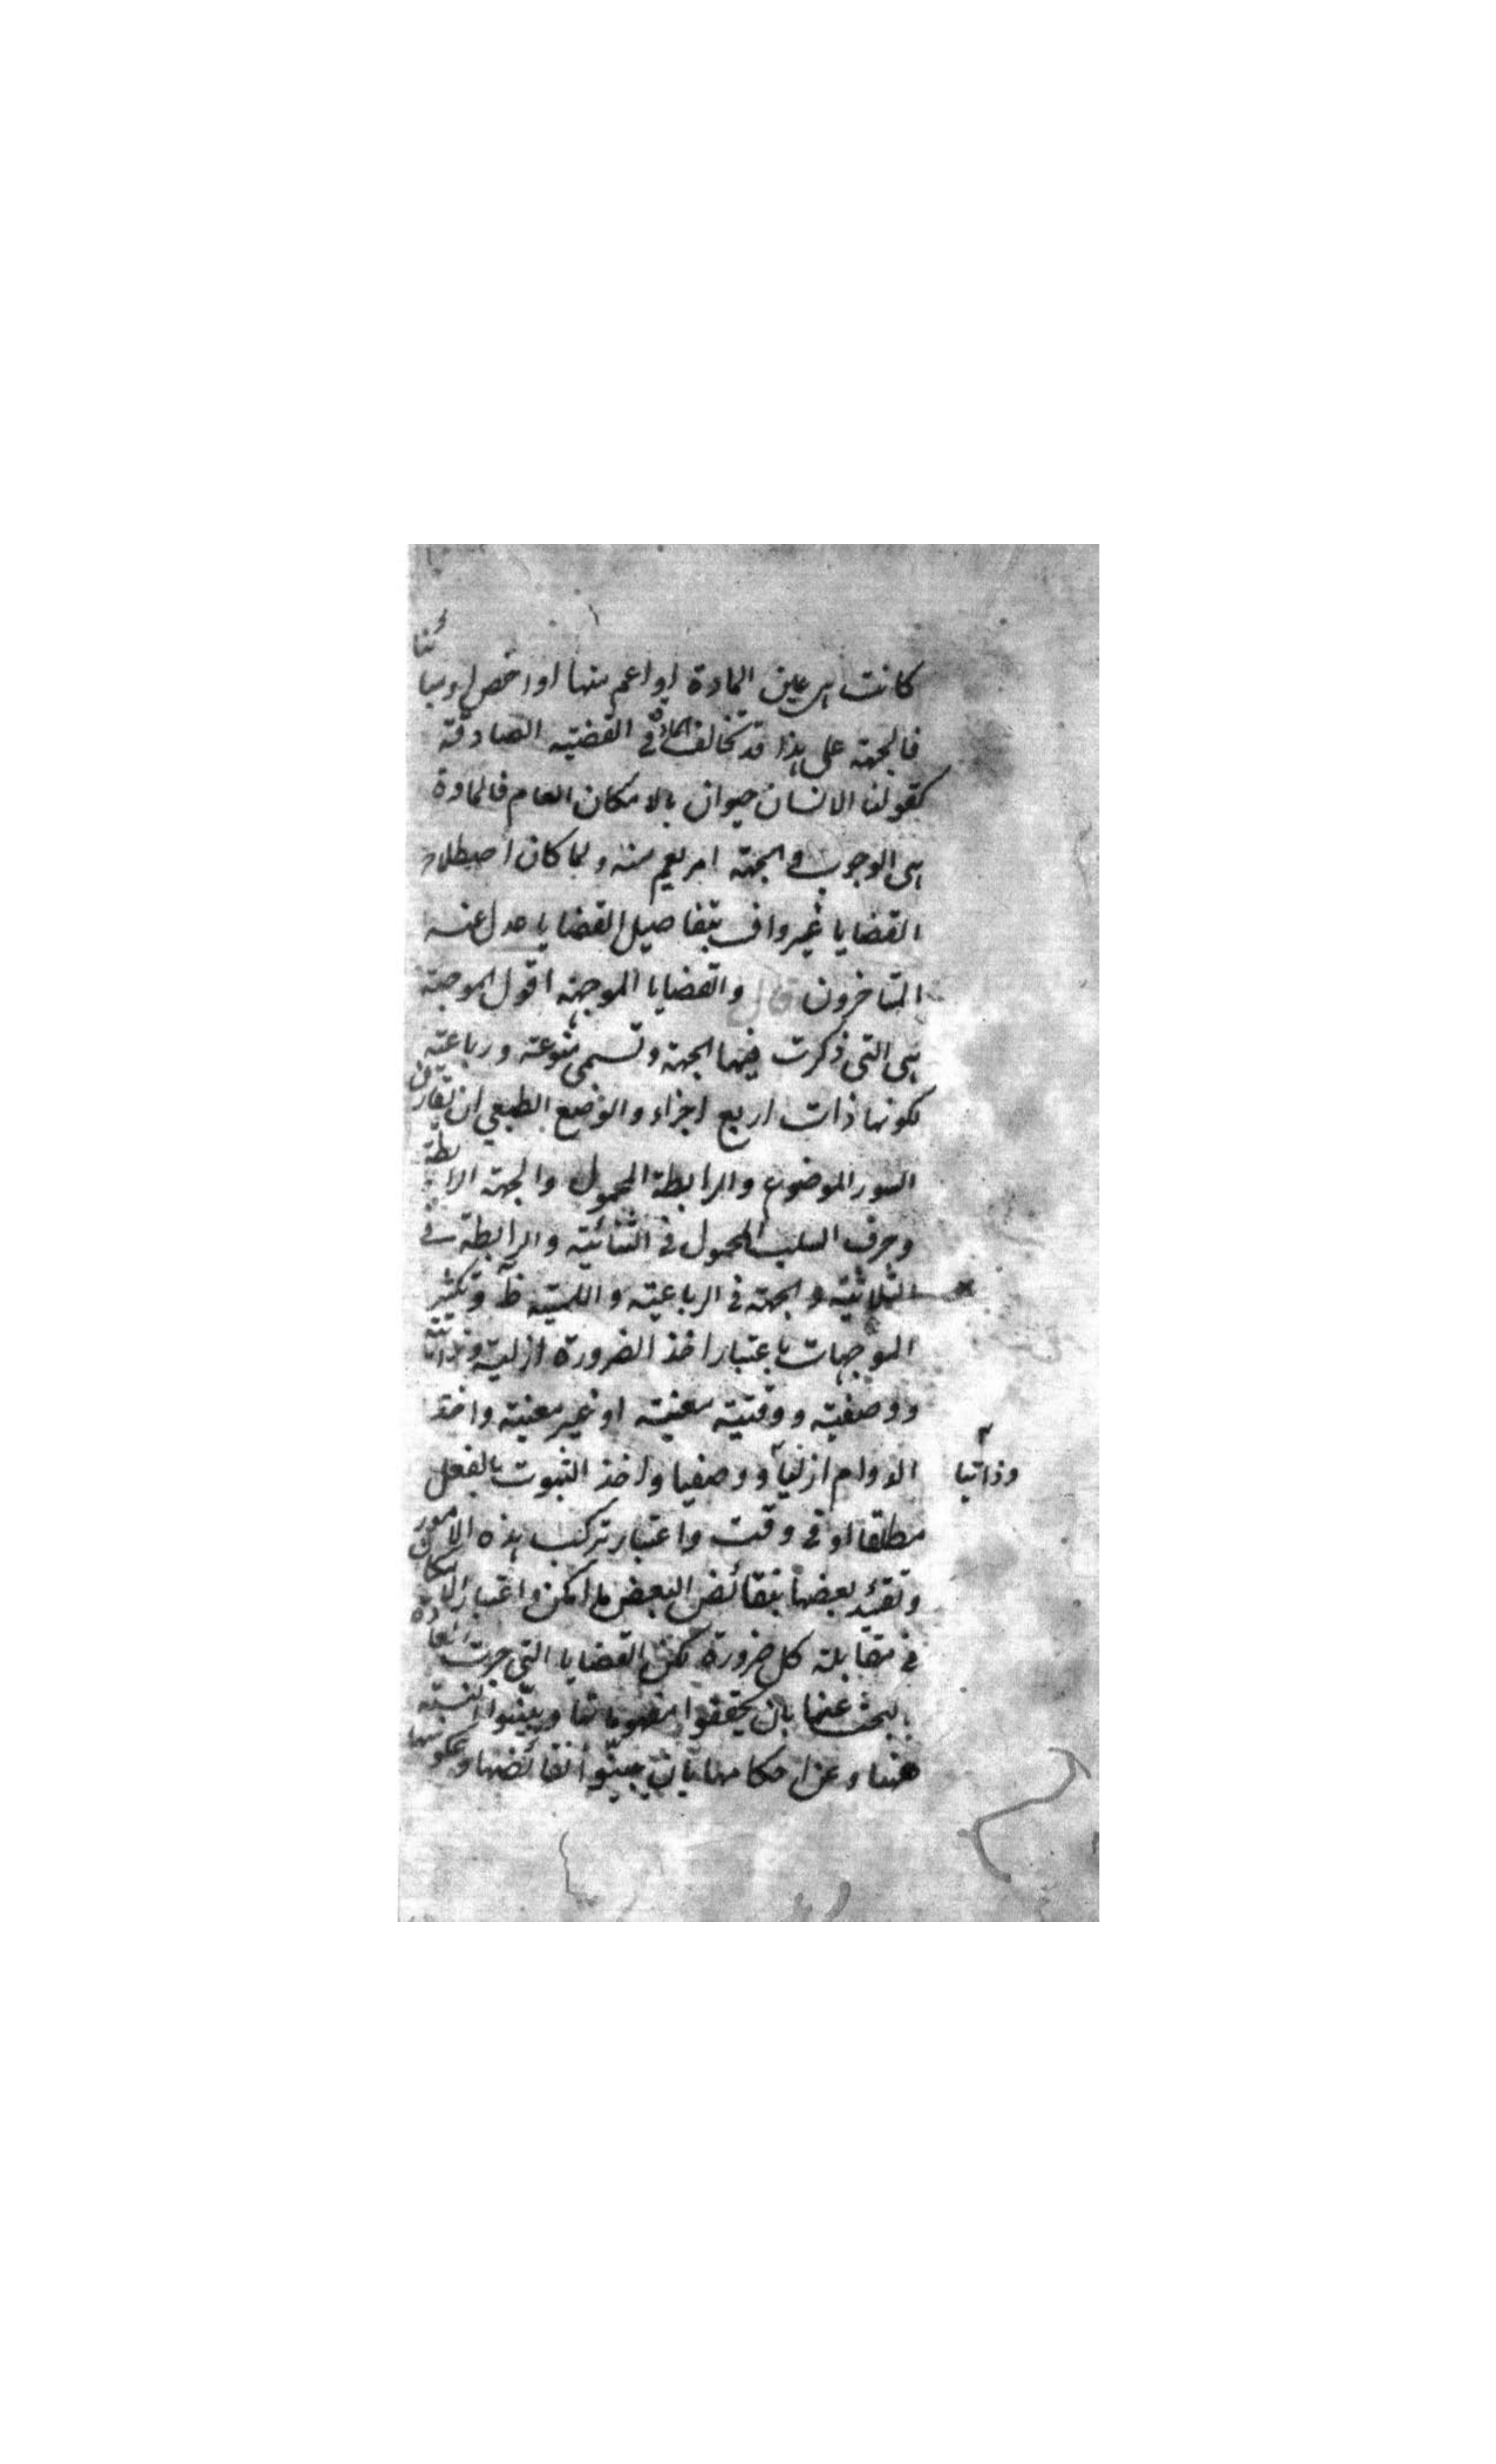 كانت هى عين المادة او اعم منها او اخص او مباينا
فالجهة على هذا قد تخالف المادة فى القضية الصادقة
كقولنا الانسان حيوان بالامكان العام فالمادة
هى الوجوب و الجهة امر يعم منه ولما كان اصطلاح
القضايا غير واف بتفاصيل القضايا عدل عنه
المتاخرون قال والقضايا الموجهة اقول الموجهة
هى التى ذكرت فيها الجهة وتسمى منوعة ورباعية
لكونها ذات اربع اجزاء والوضع الطبيعى ان تقارن
السور الموضوع والرابطة المحمول والجهة الرابطة
وحرف السلب المحمول فى الثنائية والرابطة فى
الثلاثية والجهة فى الرباعية واللمية ظ وتكثير
الموجهات باعتبار اخذ الضرورة ازلية وذاتية
ووصفية ووقتية معينة او غير معينة واخذ
الدوام ازليا ووصفيا واخذ الثبوت بالفعل
وذاتيا
مطلقا او فى وقت واعتبار تركب هذه الامور
وتقيد بعضها بنقائض البعض ما امكن واعتبار الامكان
فى مقابلة كل ضرورة لكن القضايا التى جرت العادة
بالبحث عنها بان يحققوا مفهوماتها ويبينوا النسبة
منها وعن احكامها بان يبينوا نقائضها وعكوسها